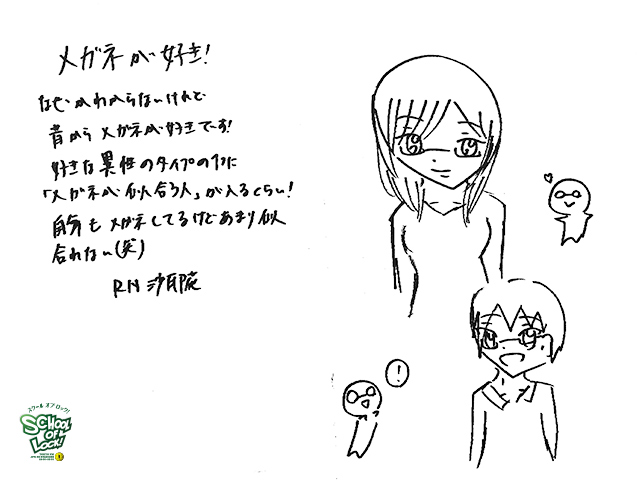 メガネが好き!
なぜかわからないけれど
昔から メガネが好きです!
好きな異性のタイプの1つに
「メガネが似合う人」が入るくらい!
自分も メガネしてるけどあまり似
合わない(笑)
RN
!
スクール オブ ロック!
SCHOOL
OF
LOCK!